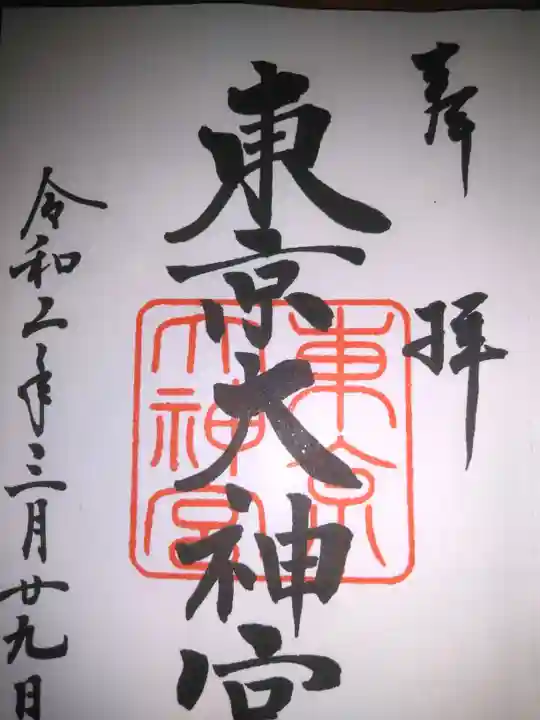 奉拝
東京大神宮
東京大神宮
令和二年三月廿九日